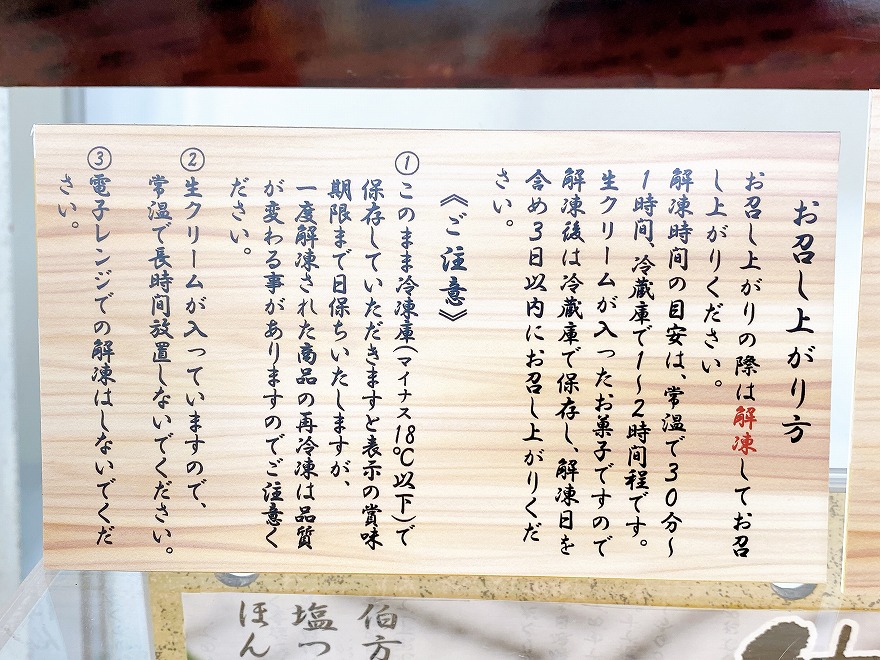 お召し上がり方
お召し上がりの際は解凍してお召
し上がりください。
解凍時間の目安は、常温で30分~
1時間、冷蔵庫で1~2時間程です。
生クリームが入ったお菓子ですので
解凍後は冷蔵庫で保存し、解凍日を
含め3日以内にお召し上がりくだ
さい。
《ご注意》
①このまま冷凍庫(マイナス18℃以下)で
保存していただきますと表示の賞味
期限まで日保ちいたしますが、
一度解凍された商品の再冷凍は品質
が変わる事がありますのでご注意く
ださい。
②生クリームが入っていますので、
常温で長時間放置しないでください。
③電子レンジでの解凍はしないでくだ
さい。
伯方
塩つ
ほん